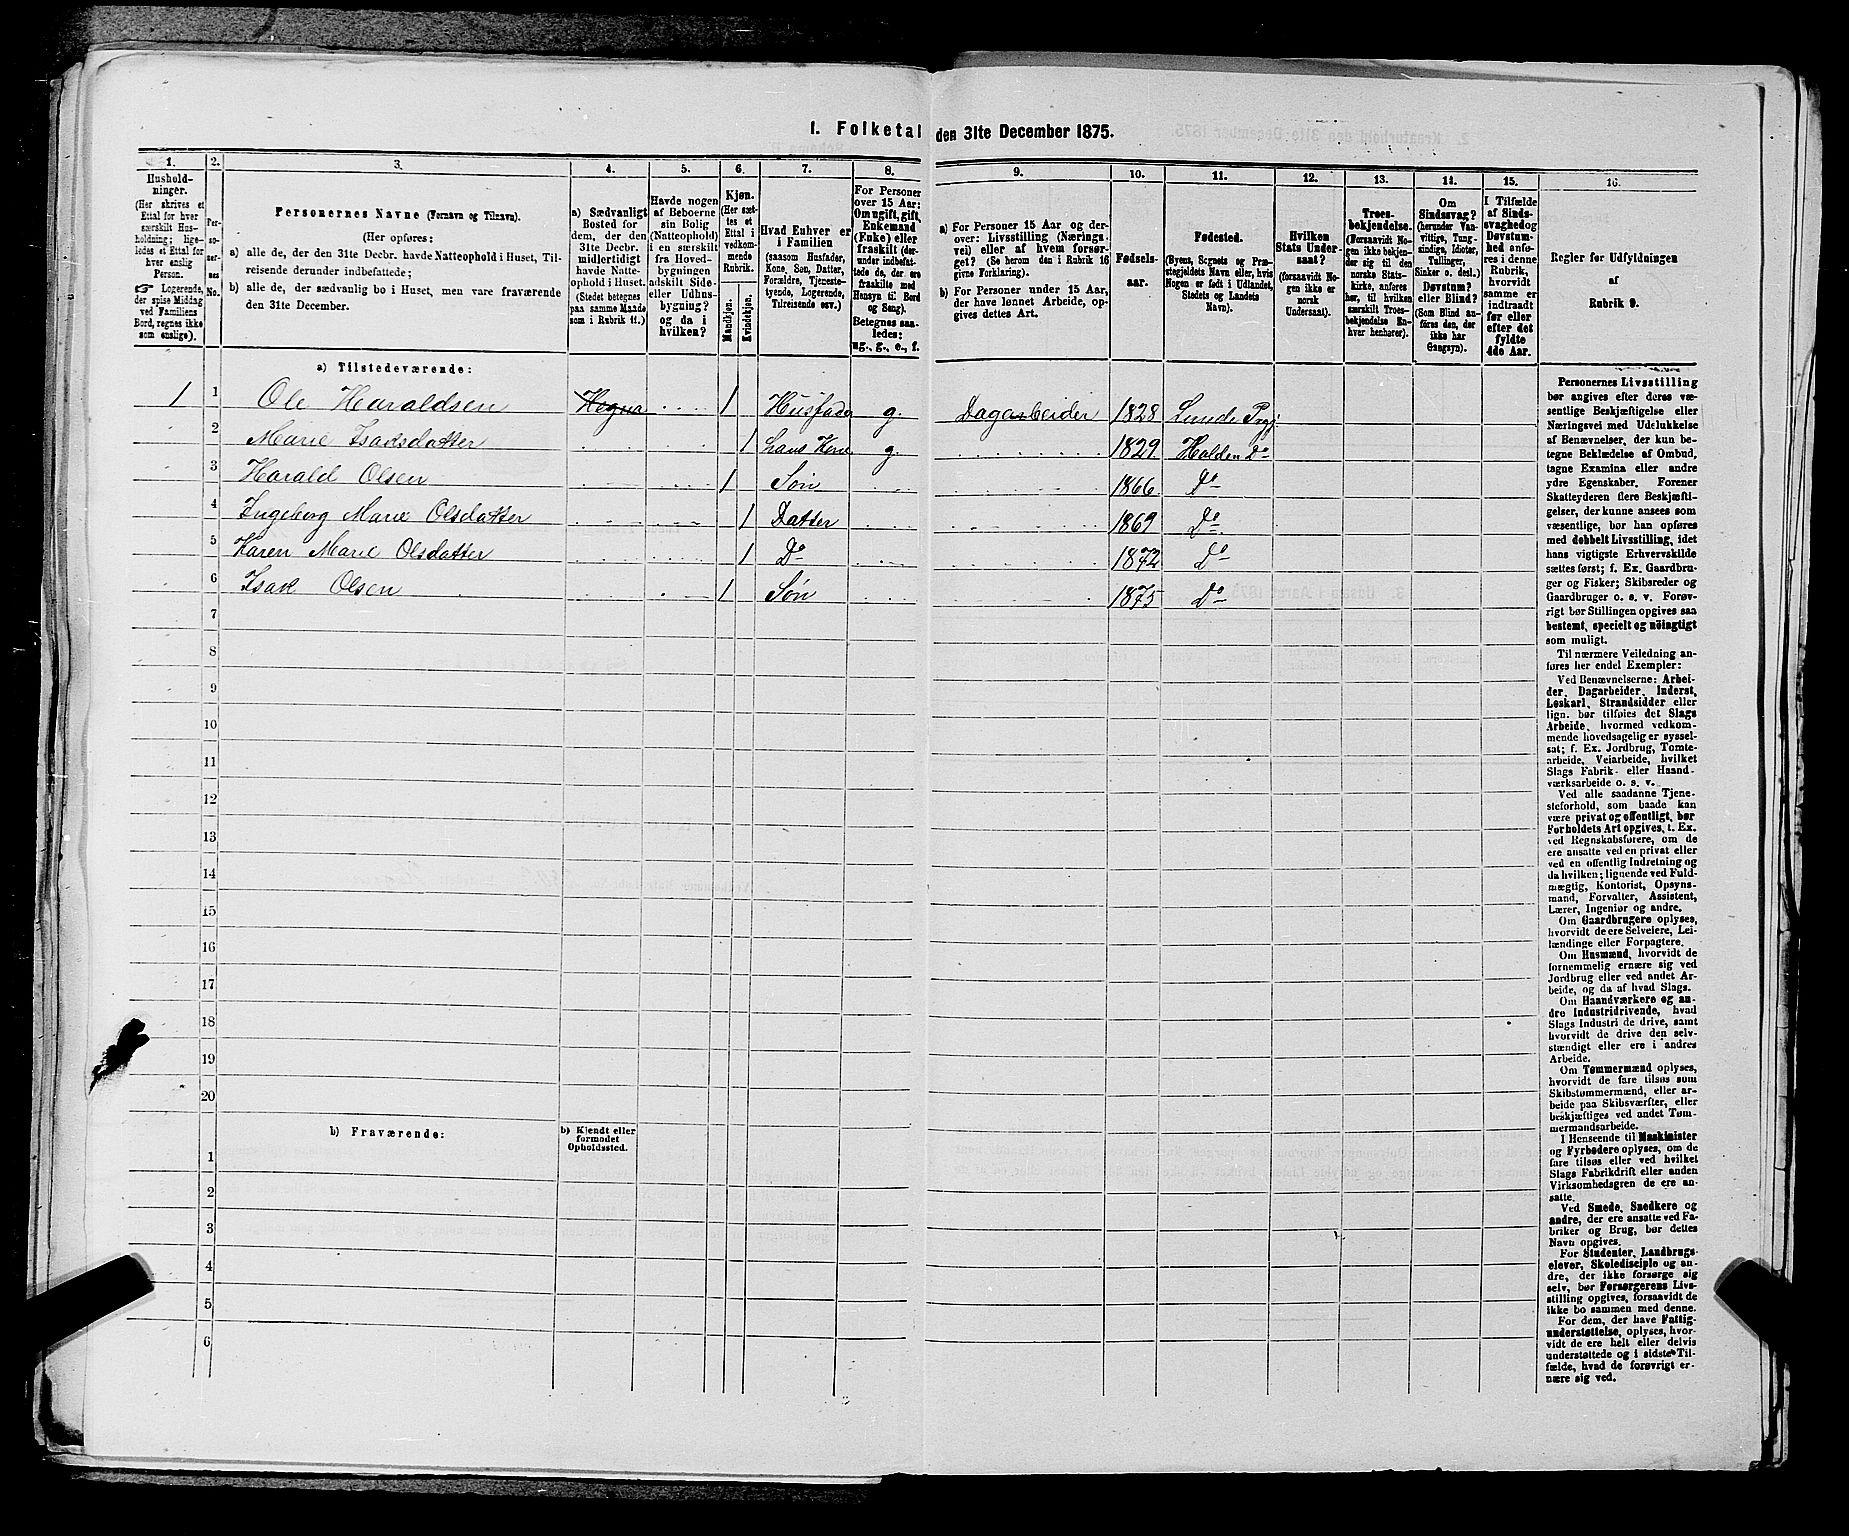 1. Folketal den 31te December 1875.
1.
2.
3.
4.
5.
6.
7.
8.
9.
10.
11.
12.
13.
14.
15.
16.
Hushold-
ninger.
(Her skrives et
Ettal for hver
særskilt Hus-
holdning; lige-
ledes et Ettal for
hver enslig
Person.
☞ Logerende,
der spise Middag
ved Familiens
Bord, regnes ikke
som enslige).
Per-
so-
ner-
nes
No.
Personernes Navne (Fornavn og Tilnavn).
(Her opføres:
a) alle de, der den 31te Decbr. havde Natteophold i Huset, Til-
reisende derunder indbefattede;
b) alle de, der sædvanlig bo i Huset, men vare fraværende
den 31te December.
a) Sædvanligt
Bosted for
dem, der den
31te Decbr.
midlertidigt
havde Natte-
ophold i Huset.
(Stedet betegnes
paa samme Maade
som i Rubrik 11.)
Havde nogen
af Beboerne
sin Bolig
(Natteophold)
i en særskilt
fra Hoved-
bygningen
adskilt Side-
eller Udhus-
bygning?
og da i
hvilken?
Kjøn.
(Her sæt-
tes et
Ettal i
vedkom-
mende
Rubrik.
Mandkjøn.
Kvindekjøn.
Hvad Enhver er
i Familien
(saasom Husfader,
Kone, Søn, Datter,
Forældre, Tjeneste-
tyende, Logerende,
Tilreisende osv.)
For Personer
over 15 Aar:
Om ugift, gift,
Enkemand
(Enke) eller
fraskilt (der-
under indbefat-
tede de, der ere
fraskilte med
Hensyn til Bord
og Seng).
Betegnes saa-
ledes:
ug., g., e., f.
a) For Personer 15 Aar og der-
over: Livsstilling (Nærings-
vei) eller af hvem forsør-
get? (Se herom den i Rubrik 16
givne Forklaring).
b) For Personer under 15 Aar,
der have lønnet Arbeide, op-
gives dettes Art.
Fødsels-
aar.
Fødested.
(Byens, Sognets og Præ-
stegjeldets Navn eller, hvis
Nogen er født i Udlandet,
Stedets og Landets
Navn).
Hvilken
Stats Under-
saat?
(forsaavidt No-
gen ikke er
norsk
Undersaat).
Troes-
bekjendelse.
(Forsaavidt No-
gen ikke bekjen-
der sig til den
norske Stats-
kirke, anføres
her, til hvilken
særskilt Troes-
bekjendelse En-
hver henhører).
Om
Sindssvag?
(herunder Van-
vittige, Tung-
sindige, Idioter,
Tullinger,
Sinker o. desl.)
Døvstum?
eller Blind?
(Som Blind an-
føres den, der
ikke har
Gangsyn).
I Tilfælde
af Sinds-
svaghed og
Døvstum-
hed anfø-
res i denne
Rubrik,
hvorvidt
samme er
indtraadt
før eller
efter det
fyldte
4de Aar.
Regler for Udfyldningen
af
Rubrik 9.
a) Tilstedeværende:
1 1 Ole Haraldsen Hogna 1 Husfader g. Dagarbeider 1828 Lunde Prgj
2 Marie Isaksdatter 1 hans Kone g. 1829 Holden Do
3 Harald Olsen 1 Søn 1866 Do
4 Ingeborg Marie Olsdatter 1 Datter 1869 Do
5 Karen Marie Olsdatter 1 Do 1872 Do
6 Isak Olsen 1 Søn 1875 Do
7
8
9
10
11
12
13
14
15
16
17
18
19
20
b) Fraværende:
b) Kjendt eller
formodet
Opholdssted.
1
2
3
4
5
6
Personernes Livsstilling
bør angives efter deres væ-
sentlige Beskjæftigelse eller
Næringsvei med Udelukkelse
af Benævnelser, der kun be-
tegne Beklædelse af Ombud,
tagne Examina eller andre
ydre Egenskaber. Forener
Skatteyderen flere Beskjæfti-
gelser, der kunne ansees som
væsentlige, bør han opføres
med dobbelt Livsstilling, idet
hans vigtigste Erhvervskilde
sættes først; f. Ex. Gaardbru-
ger og Fisker; Skibsreder og
Gaardbruger o. s. v. Forøv-
rigt bør Stillingen opgives saa
bestemt, specielt og nöiagtigt
som muligt.
Til nærmere Veiledning an-
føres her endel Exempler:
Ved Benævnelserne: Arbei-
der, Dagarbeider, Inderst,
Løskarl, Strandsidder eller
lign. bør tilføies det Slags
Arbeide, hvormed vedkom-
mende hovedsagelig er syssel-
sat; f. Ex. Jordbrug, Tomte-
arbeide, Veiarbeide, hvilket
Slags Fabrik- eller Haand-
værksarbeide o. s. v.
Ved alle saadanne Tjene-
steforhold, som baade kan
være privat og offentligt, bør
Forholdets Art opgives, t. Ex.
ved Regnskabsførere, om de
ere ansatte ved en privat eller
ved en offentlig Indretning og
da hvilken; lignende ved Fuld-
mægtig, Kontorist, Opsyns-
mand, Forvalter, Assistent,
Lærer, Ingeniør og andre.
Om Gaardbrugere oplyses,
hvorvidt de ere Selveiere, Lei-
lændinge eller Forpagtere.
Om Husmænd, hvorvidt de
fornemmelig ernære sig ved
Jordbrug eller ved andet Ar-
beide, og da af hvad Slags.
Om Haandværkere og an-
dre Industridrivende, hvad
Slags Industri de drive, samt
hvorvidt de drive den selv-
stændigt eller ere i andres
Arbeide.
Om Tømmermænd oplyses,
hvorvidt de fare tilsøs som
Skibstømmermænd, eller ar-
beide paa Skibsværfter, eller
beskjæftiges ved andet Tøm-
mermandsarbeide.
I Henseende til Maskinister
og Fyrbødere oplyses, om de
fare tilsøs eller ved hvilket
Slags Fabrikdrift eller anden
Virksomhedsgren de ere an-
satte.
Ved Smede, Snedkere og
andre, der ere ansatte ved Fa-
briker og Brug, bør dettes
Navn opgives.
For Studenter, Landbrugs-
elever, Skoledisciple og an-
dre, der ikke forsørge sig
selv, bør Forsørgerens Livs-
stilling opgives, forsaavidt de
ikke bo sammen med denne.
For dem, der have Fattig-
understøttelse, oplyses, hvor-
vidt de ere helt eller delvis
understøttede og i sidste Til-
fælde, hvad de forøvrigt er-
nære sig ved.